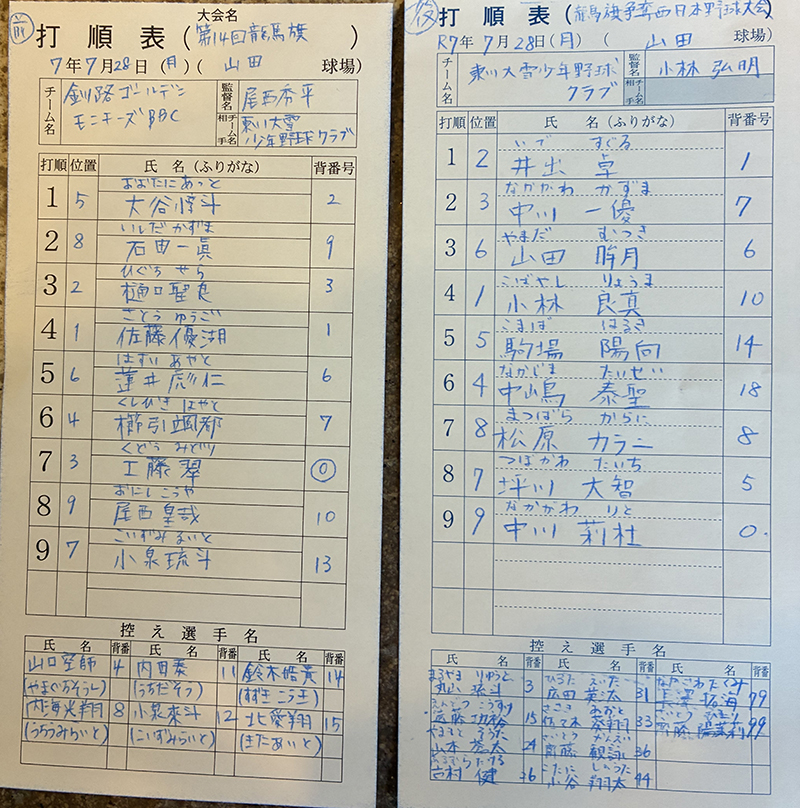 前
大会名
打順表(第14回龍馬旗)
7年7月28日(月)(山田 球場)
チーム名 釧路ゴールデンモニキーズBBC 監督名 尾西秀平
相手チーム名 東川大雪少年野球クラブ
打順 位置 氏名(ふりがな) 背番号
おおたにあっと
1 5 大谷惺斗 2
いしだ かずま
2 8 石田一眞 9
ひぐち せら
3 2 樋口聖良 3
さとう ゆうご
4 1 佐藤優湖 1
はすい あやと
5 6 蓮井彪仁 6
くしひき はやと
6 4 櫛引颯都 7
くどう みどり
7 3 工藤翠 0
おにし こうや
8 9 尾西皇哉 10
こいずみ るいと
9 7 小泉琉斗 13
控え選手名
氏名 背番 氏名 背番 氏名 背番
山口空師 4 内田奏 11 鈴木皓貴 14
(やまぐちそうし) (うちだそう) (すずきこうき)
内海光翔 8 小泉來斗 12 北愛翔 15
(うちうみらいと) (こいずみらいと) (きたあいと)
後
打順表(龍馬旗争奪西日本野球大会)
R7年7月28日(月)(山田 球場)
チーム名 東川大雪少年野球クラブ 監督名 小林弘明
相手
打順 位置 氏名(ふりがな) 背番号
いで すぐる
1 2 井出 卓 1
なかがわ かずま
2 3 中川 一優 7
やまだ むつき
3 6 山田 眸月 6
こばやし りょうま
4 1 小林 良真 10
こまば はるき
5 5 駒場 陽向 14
なかじま たいせい
6 4 中嶋 泰聖 18
まつばら からに
7 8 松原 カラニ 8
つばかわ たいち
8 7 坪川 大智 5
なかがわ りと
9 9 中川 莉杜 0
控え選手名
氏名 背番 氏名 背番 氏名 背番
まるやま りゅうと ひろた えいた
丸山 琉斗 3 広田 英汰 31 拓海 99
えんどう こうすけ ささき あおと
遠藤 15 佐々木 蒼翔 33 陽茉莉 99
やまもと そうた さいとう かんえい
山本 蒼太 24 斉藤 観詠 36
よしむら たける こたに しょうた
吉村 健 26 小谷 翔太 44